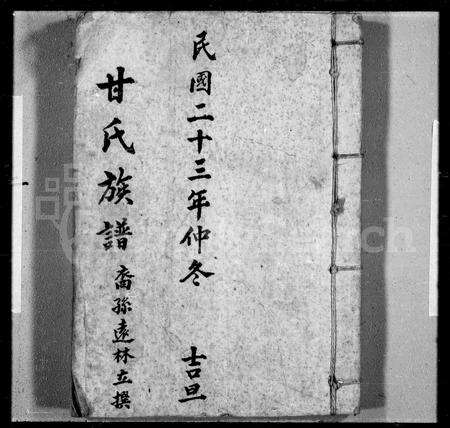 民國二十三年仲冬 吉旦
甘氏族譜 裔孫遠林立撰